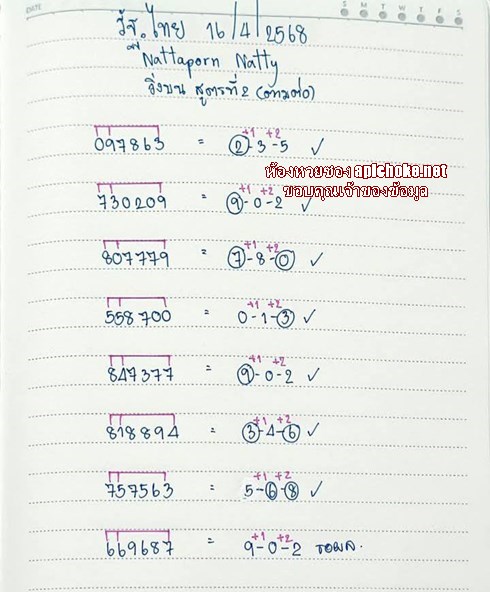 DATE S M T W T F S
รัฐ.ไทย 16/4/2568
พี่ Nattaporn Natty
วิ่งบน สูตรที่ 2 (ตามต่อ)
+1 +2
097863 = 2-3-5 ✓
ห้องหวยซอง apichoke.net
ขอบคุณเจ้าของข้อมูล
+1 +2
730209 = 9-0-2 ✓
+1 +2
807779 = 7-8-0 ✓
+1 +2
558700 = 0-1-3 ✓
+1 +2
847377 = 9-0-2 ✓
+1 +2
818894 = 3-4-6 ✓
+1 +2
757563 = 5-6-8 ✓
+1 +2
669687 = 9-0-2 รอผล.